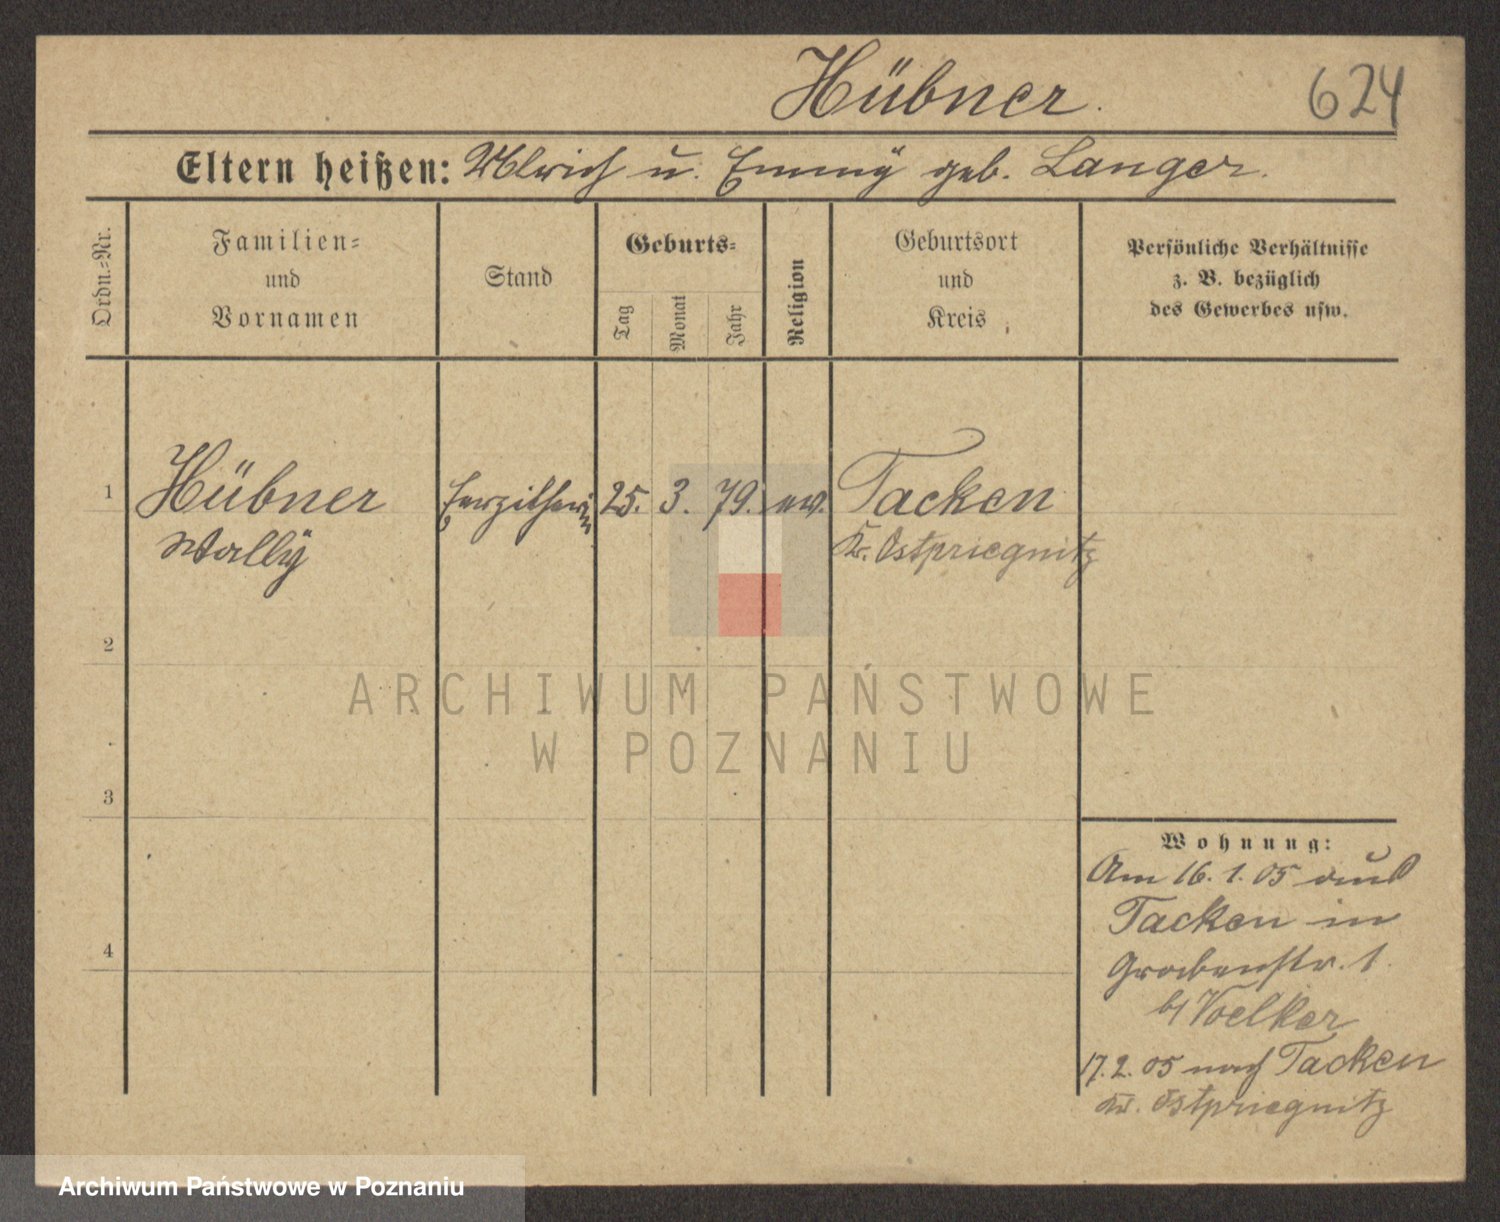 Hübner. 624
Eltern heißen: Ulrich u. Emmÿ geb. Langer.
Ordn.=Nr.
Familien=
und
Vornamen
Stand
Geburts=
Tag
Monat
Jahr
Religion
Geburtsort
und
Kreis
Persönliche Verhältnisse
z. B. bezüglich
des Gewerbes usw.
1
Hübner
Wallÿ
25. 3. 79. ev.
Tacken
Kr. Ostpriegnitz
2
ARCHIWUM PAŃSTWOWE
W POZNANIU
3
Wohnung:
Am 16. 1. 05 aus
Tacken in
Grabenstr. 1.
b/ Voelker
17. 2. 05 nach Tacken
Kr. Ostpriegnitz
4
Archiwum Państwowe w Poznaniu